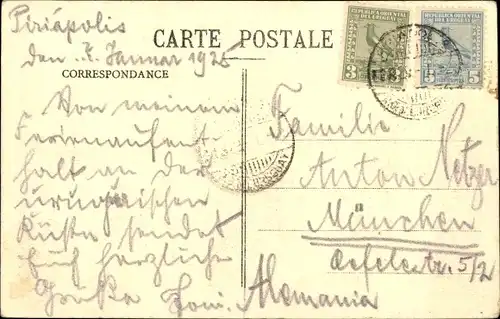 Piriápolis
den 7. Januar 1925
CARTE POSTALE
CORRESPONDANCE
REPUBLICA ORIENTAL
DEL URUGUAY
3
3
REPUBLICA ORIENTAL
DEL URUGUAY
5
5
Von meinem
Ferienaufent-
halt an der
uruguayischen
Küste sendet
Euch herzliche
Grüße Toni.
Familie
Anton Netzer
München
Oefelestr. 5/2
Alemania
URUGUAY